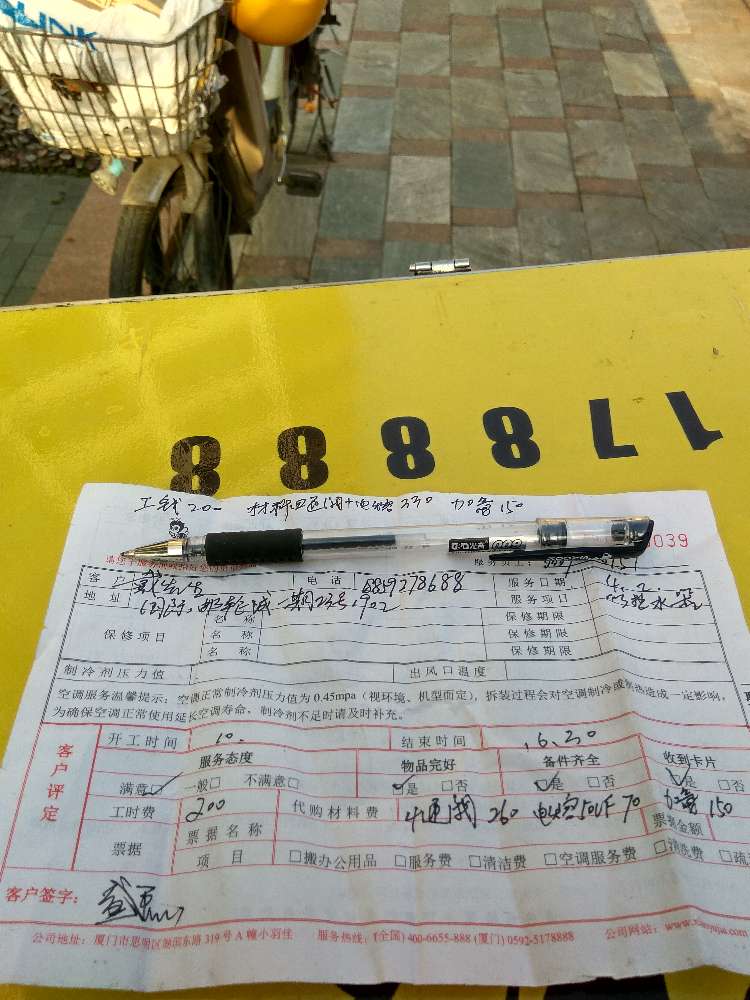 LINK
17888
888
工钱200 材料四通阀+电容330 加氟150
039
客户 戴先生 电话 服务日期
地址 一期23号1902 服务项目 热水器
保修项目 名称 保修期限
名称 保修期限
名称 保修期限
制冷剂压力值 出风口温度
空调服务温馨提示：空调正常制冷剂压力值为0.45mpa（视环境、机型而定），拆装过程会对空调制冷或制热造成一定影响，
为确保空调正常使用延长空调寿命，制冷剂不足时请及时补充。
客户评定
开工时间 10. 结束时间 16.30
服务态度 物品完好 备件齐全 收到卡片
满意□ 一般□ 不满意□ □是 □否 □是 □否 □是 □否
工时费 200 代购材料费 四通阀 260 电容50UF 70 加氟150
票据 票据名称 票据金额
项目 □搬办公用品 □服务费 □清洁费 □空调服务费 □清洗费 □疏
客户签字：
公司地址：厦门市思明区湖滨东路319号A幢小羽佳 服务热线：(全国)400-6655-888 (厦门)0592-5178888 公司网站：www.xiaoyujia.com